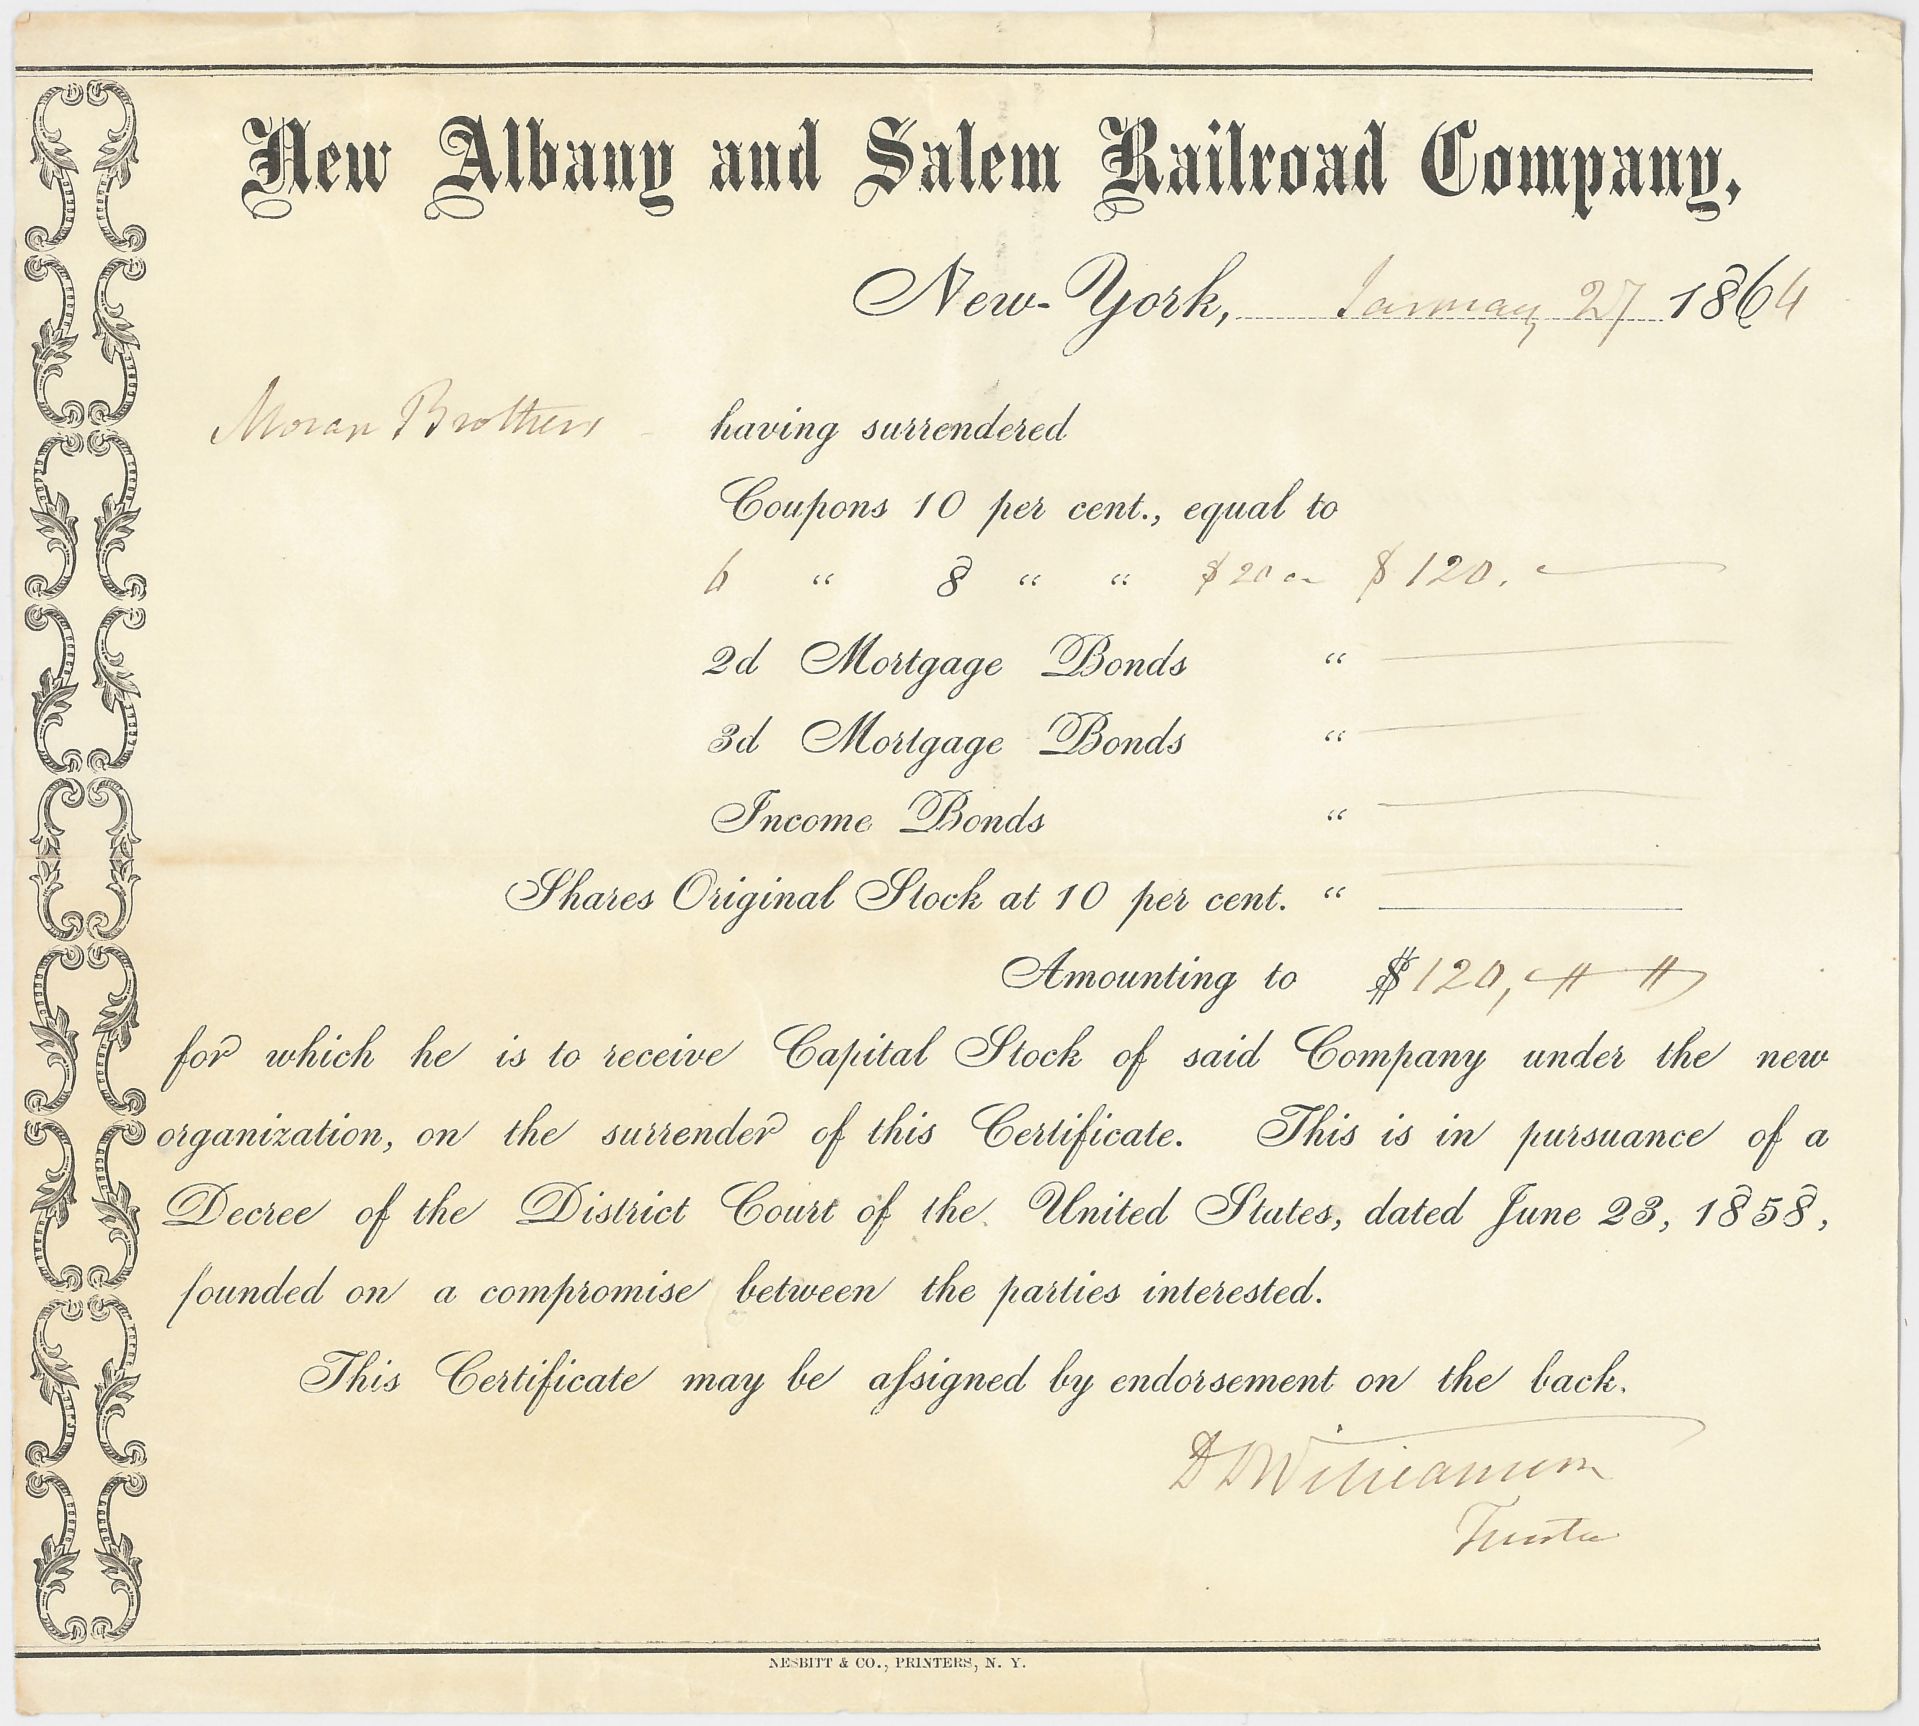 New Albany and Salem Railroad Company,
New-York, January 27 1864
Moran Brothers having surrendered
Coupons 10 per cent., equal to
6 “ 8 “ “ $20 $120.
2d Mortgage Bonds “
3d Mortgage Bonds “
Income Bonds “
Shares Original Stock at 10 per cent. “
Amounting to $120,
for which he is to receive Capital Stock of said Company under the new
organization, on the surrender of this Certificate. This is in pursuance of a
Decree of the District Court of the United States, dated June 23, 1858,
founded on a compromise between the parties interested.
This Certificate may be aſsigned by endorsement on the back.
D D Williamson
Trustee
NESBITT & CO., PRINTERS, N. Y.